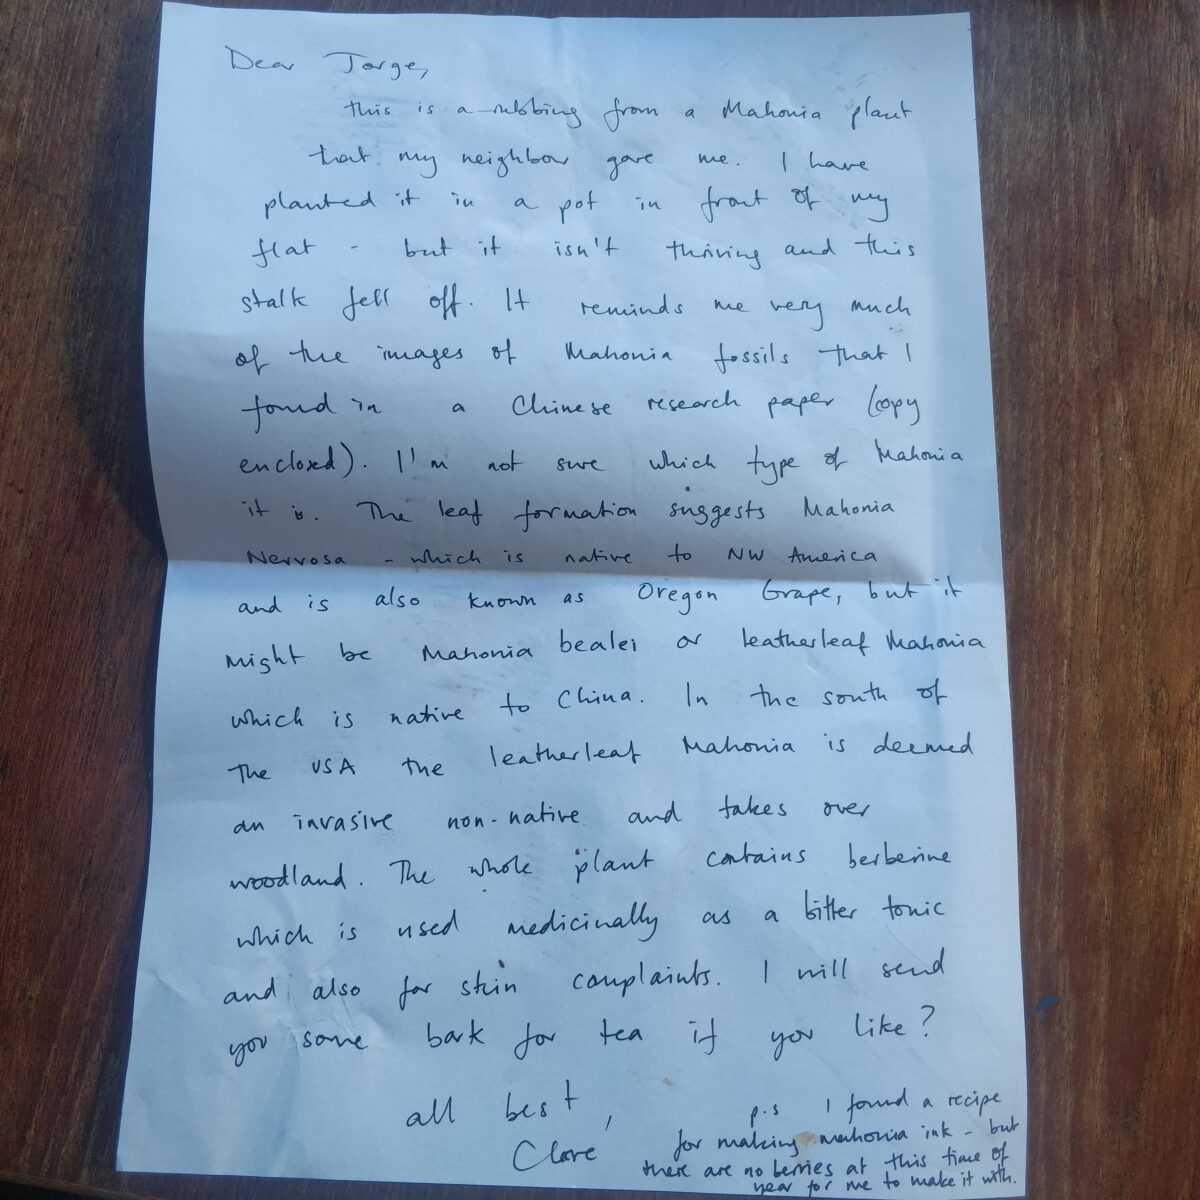 Dear Jorge,
this is a rubbing from a Mahonia plant
that my neighbour gave me. I have
planted it in a pot in front of my
flat - but it isn't thriving and this
stalk fell off. It reminds me very much
of the images of Mahonia fossils that I
found in a Chinese research paper (copy
enclosed). I'm not sure which type of Mahonia
it is. The leaf formation suggests Mahonia
Nervosa - which is native to NW America
and is also known as Oregon Grape, but it
might be Mahonia bealei or leatherleaf Mahonia
which is native to China. In the south of
the USA the leatherleaf Mahonia is deemed
an invasive non-native and takes over
woodland. The whole plant contains berberine
which is used medicinally as a bitter tonic
and also for skin complaints. I will send
you some bark for tea if you like?
all best,
Clare
p.s I found a recipe
for making mahonia ink - but
there are no berries at this time of
year for me to make it with.